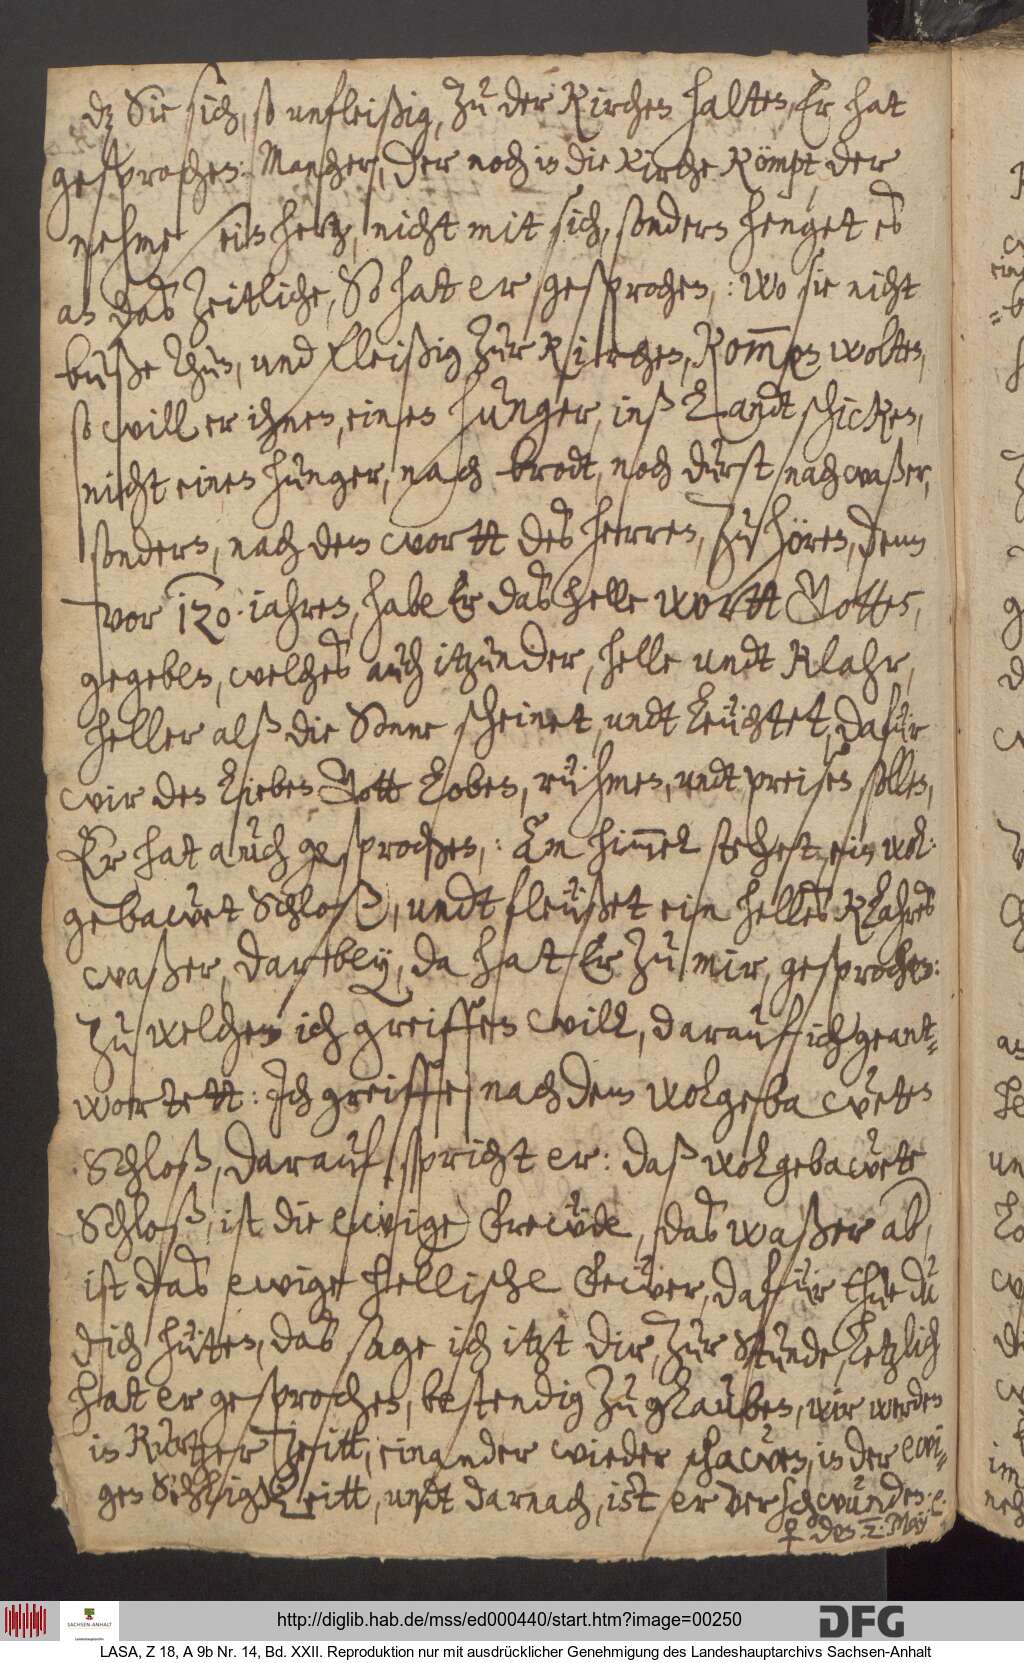 dz Sie sich, so unfleißig, Zu der Kirchen halten, Er hat
gesprochen: Mancher, der noch in die Kirche Kömpt, der
nehme sein hertz, nicht mit sich, sondern henget es
an das Zeitliche, So hat er gesprochen,: Wo sie nicht
buße thun, und fleißig Zur Kirchen, Kom̄en wolten,
so will er ihnen, einen hunger, inß Landt schicken,
nicht einen hunger, nach brodt, noch durst nach waßer,
sondern, nach dem wortt des herren, Zu hören, denn
vor 120. iahren, habe Er das helle wortt Gottes,
gegeben, welches auch itzunder, helle undt Klahr,
heller alß die Sonne scheinet, undt Leuchtet, dafür
wir den Lieben Gott Loben, rühmen, undt preisen sollen,
Er hat auch gesprochen,: Am him̄el stehet, ein wol-
gebawet Schloß, undt fleußet ein helles Klahres
waßer, darbey, da hat Er Zu mir, gesprochen:
Zu welchem ich greiffen will, darauf ich geant=
wortett: Ich greiffe nach dem wolgebaweten
Schloß, darauf spricht er: daß wolgebawete
Schloß, ist die ewige freude, das waßer ab,
ist das ewige hellische feuwer, dafür thue du
dich hüten, das sage ich itzt dir, Zur Stunde, Letzlich
hat er gesprochen, bestendig Zu glauben, wir werden
in Kurtzer Zeitt, einander wieder schawen, in der ewi=
gen Sehligkeitt, undt darnach, ist er verschwunden.
♀ den 2. May
http://diglib.hab.de/mss/ed000440/start.htm?image=00250
SACHSEN-ANHALT
DFG
LASA, Z 18, A 9b Nr. 14, Bd. XXII. Reproduktion nur mit ausdrücklicher Genehmigung des Landeshauptarchivs Sachsen-Anhalt